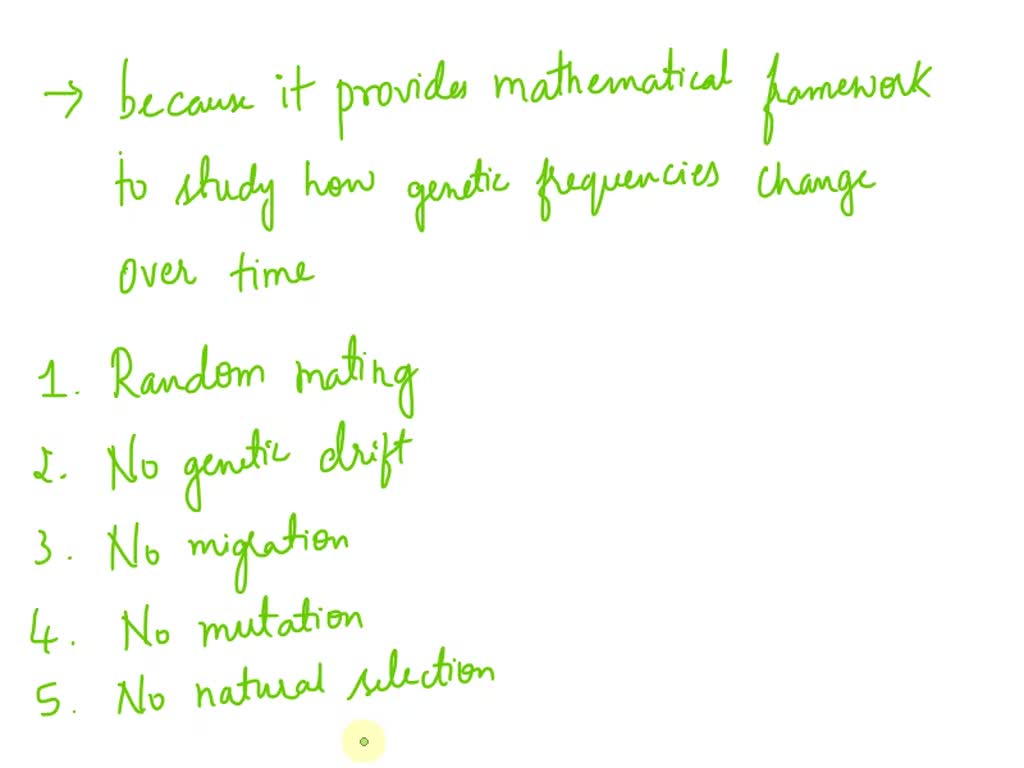 → because it provides mathematical framework
to study how genetic frequencies change
over time
1. Random mating
2. No genetic drift
3. No migration
4. No mutation
5. No natural selection